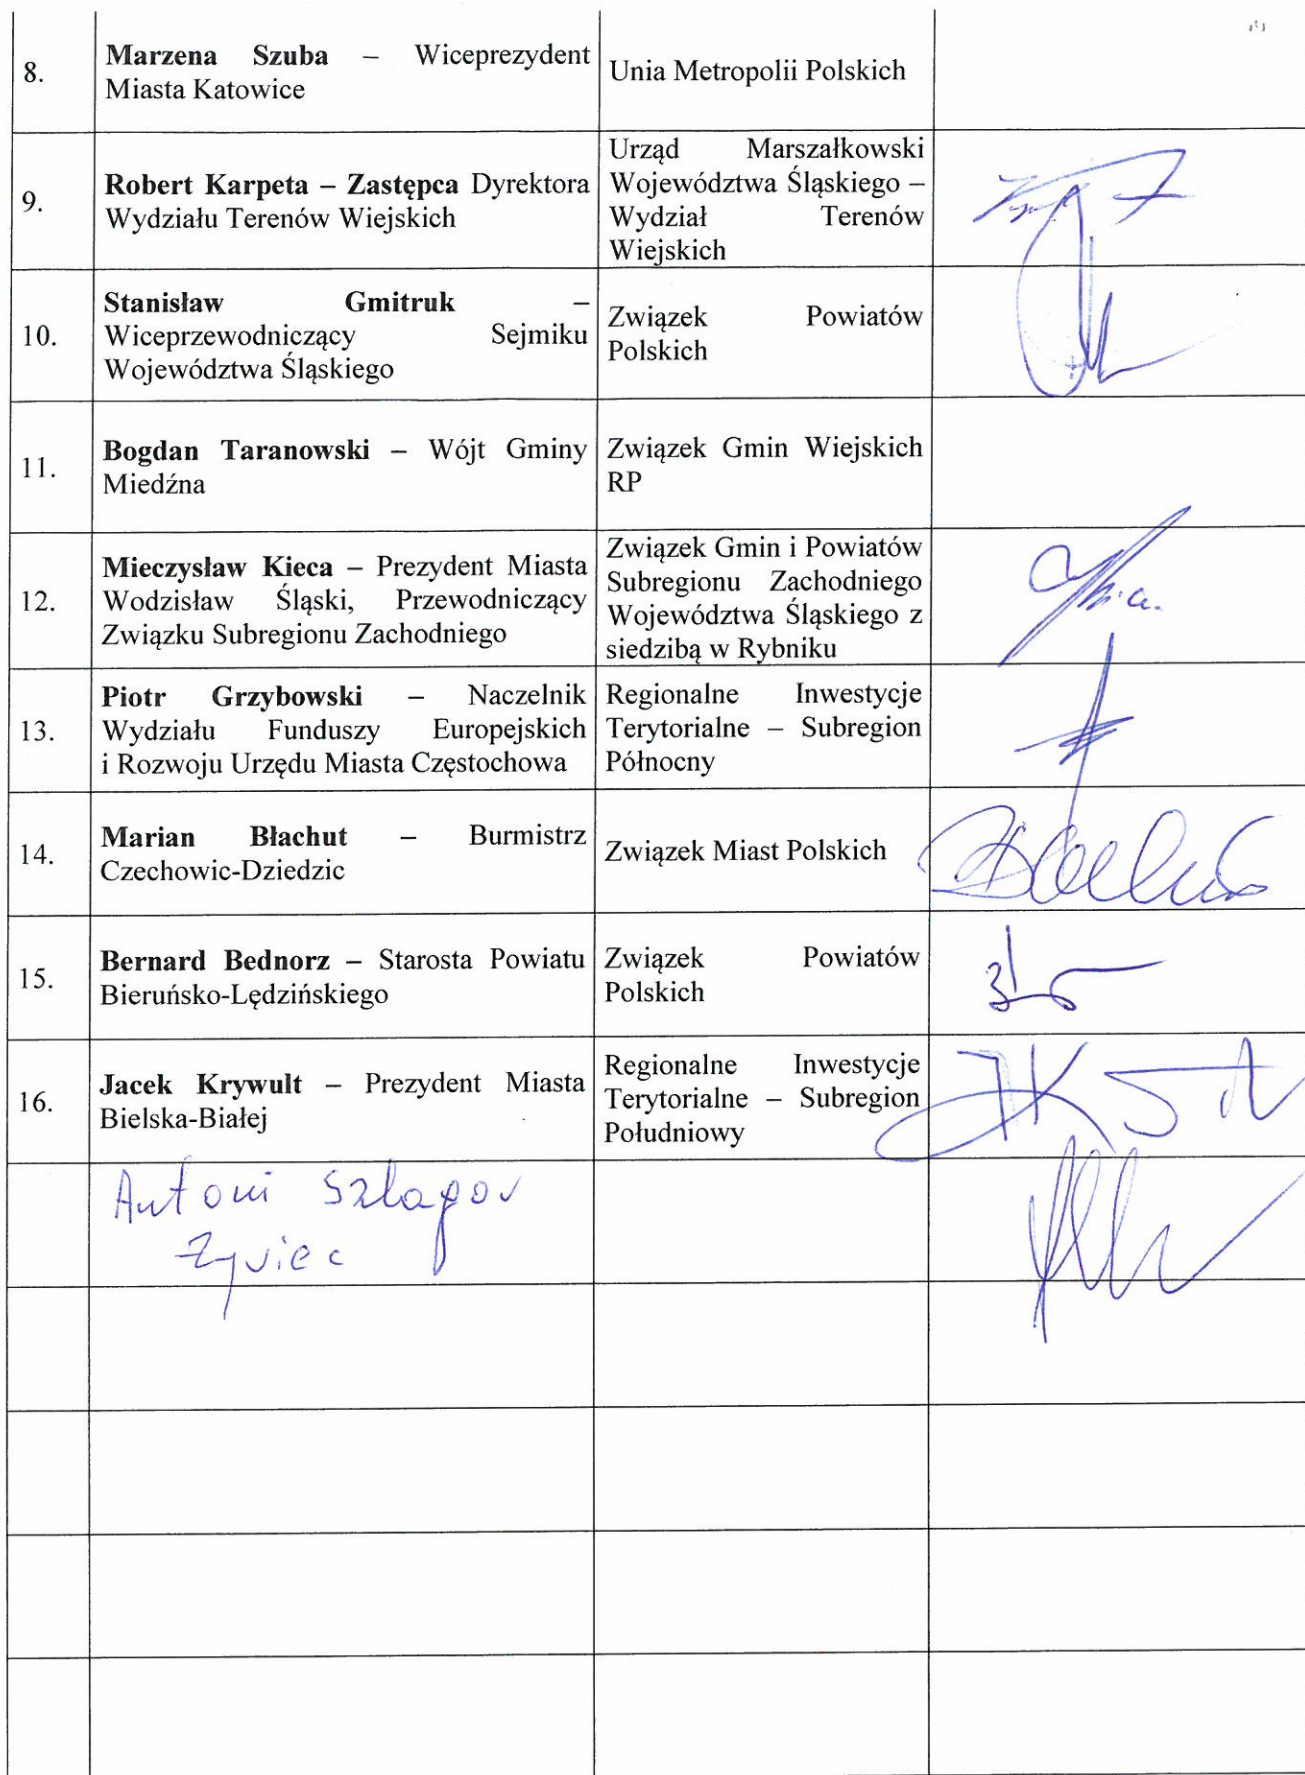 8.
Marzena Szuba – Wiceprezydent
Miasta Katowice
Unia Metropolii Polskich
9.
Robert Karpeta – Zastępca Dyrektora
Wydziału Terenów Wiejskich
Urząd Marszałkowski
Województwa Śląskiego –
Wydział Terenów
Wiejskich
10.
Stanisław Gmitruk –
Wiceprzewodniczący Sejmiku
Województwa Śląskiego
Związek Powiatów
Polskich
11.
Bogdan Taranowski – Wójt Gminy
Miedźna
Związek Gmin Wiejskich
RP
12.
Mieczysław Kieca – Prezydent Miasta
Wodzisław Śląski, Przewodniczący
Związku Subregionu Zachodniego
Związek Gmin i Powiatów
Subregionu Zachodniego
Województwa Śląskiego z
siedzibą w Rybniku
13.
Piotr Grzybowski – Naczelnik
Wydziału Funduszy Europejskich
i Rozwoju Urzędu Miasta Częstochowa
Regionalne Inwestycje
Terytorialne – Subregion
Północny
14.
Marian Błachut – Burmistrz
Czechowic-Dziedzic
Związek Miast Polskich
15.
Bernard Bednorz – Starosta Powiatu
Bieruńsko-Lędzińskiego
Związek Powiatów
Polskich
16.
Jacek Krywult – Prezydent Miasta
Bielska-Białej
Regionalne Inwestycje
Terytorialne – Subregion
Południowy
Antoni Szlagor
Żywiec